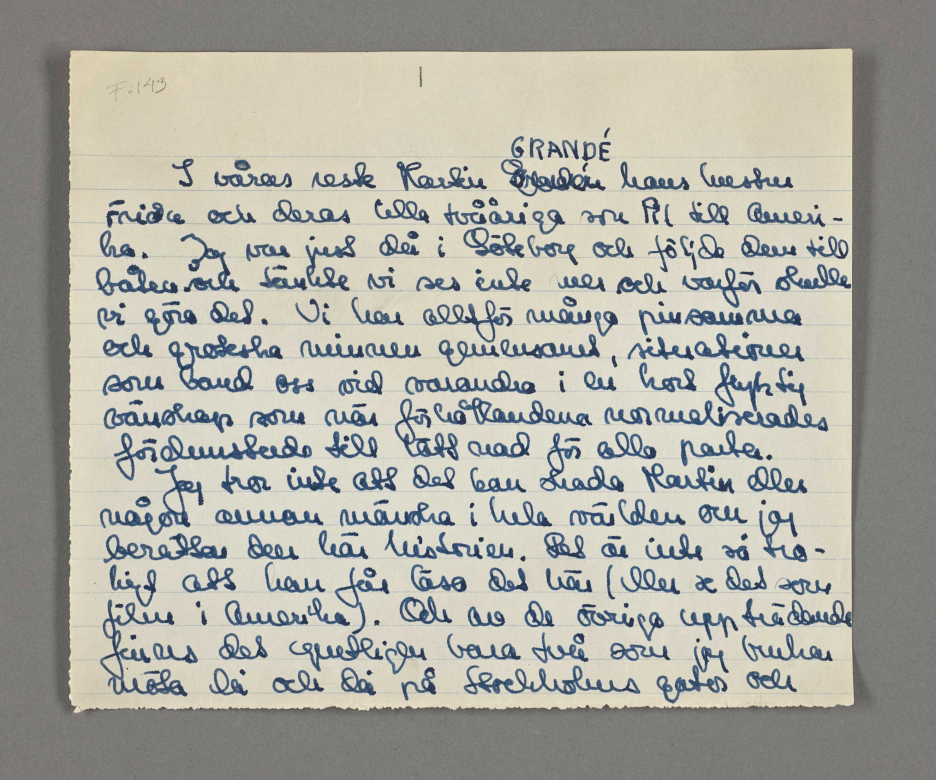 F:143
1
GRANDÉ
I våras reste Martin hans hustru
Frida och deras lilla tvååriga son Pil till Ameri-
ka. Jag var just då i Göteborg och följde dem till
båten och tänkte vi ses inte mer och varför skulle
vi göra det. Vi har alltför många pinsamma
och groteska minnen gemensamt, situationer
som band oss vid varandra i en kort flyktig
vänskap som när förhållandena normaliserades
fördunstade till lättnad för alla parter.
Jag tror inte att det kan skada Martin eller
någon annan människa i hela världen om jag
berättar den här historien. Det är inte så tro-
ligt att han får läsa det här (eller se det som
film i Amerika). Och av de övriga uppträdande
finns det egentligen bara två som jag brukar
möta då och då på Stockholms gator och